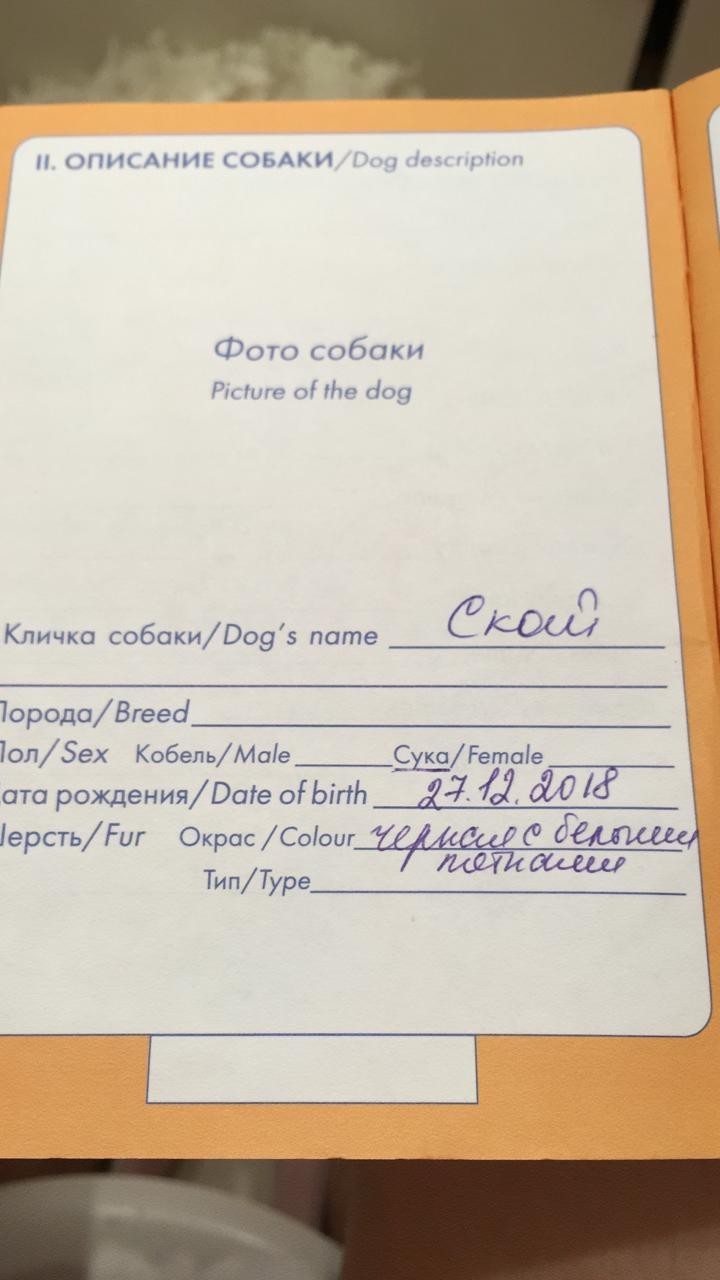 II. ОПИСАНИЕ СОБАКИ/Dog description
Фото собаки
Picture of the dog
Кличка собаки/Dog's name Скай
Порода/Breed
Пол/Sex Кобель/Male Сука/Female
Дата рождения/Date of birth 27.12.2018
Шерсть/Fur Окрас/Colour черная с белыми
пятнами
Тип/Type